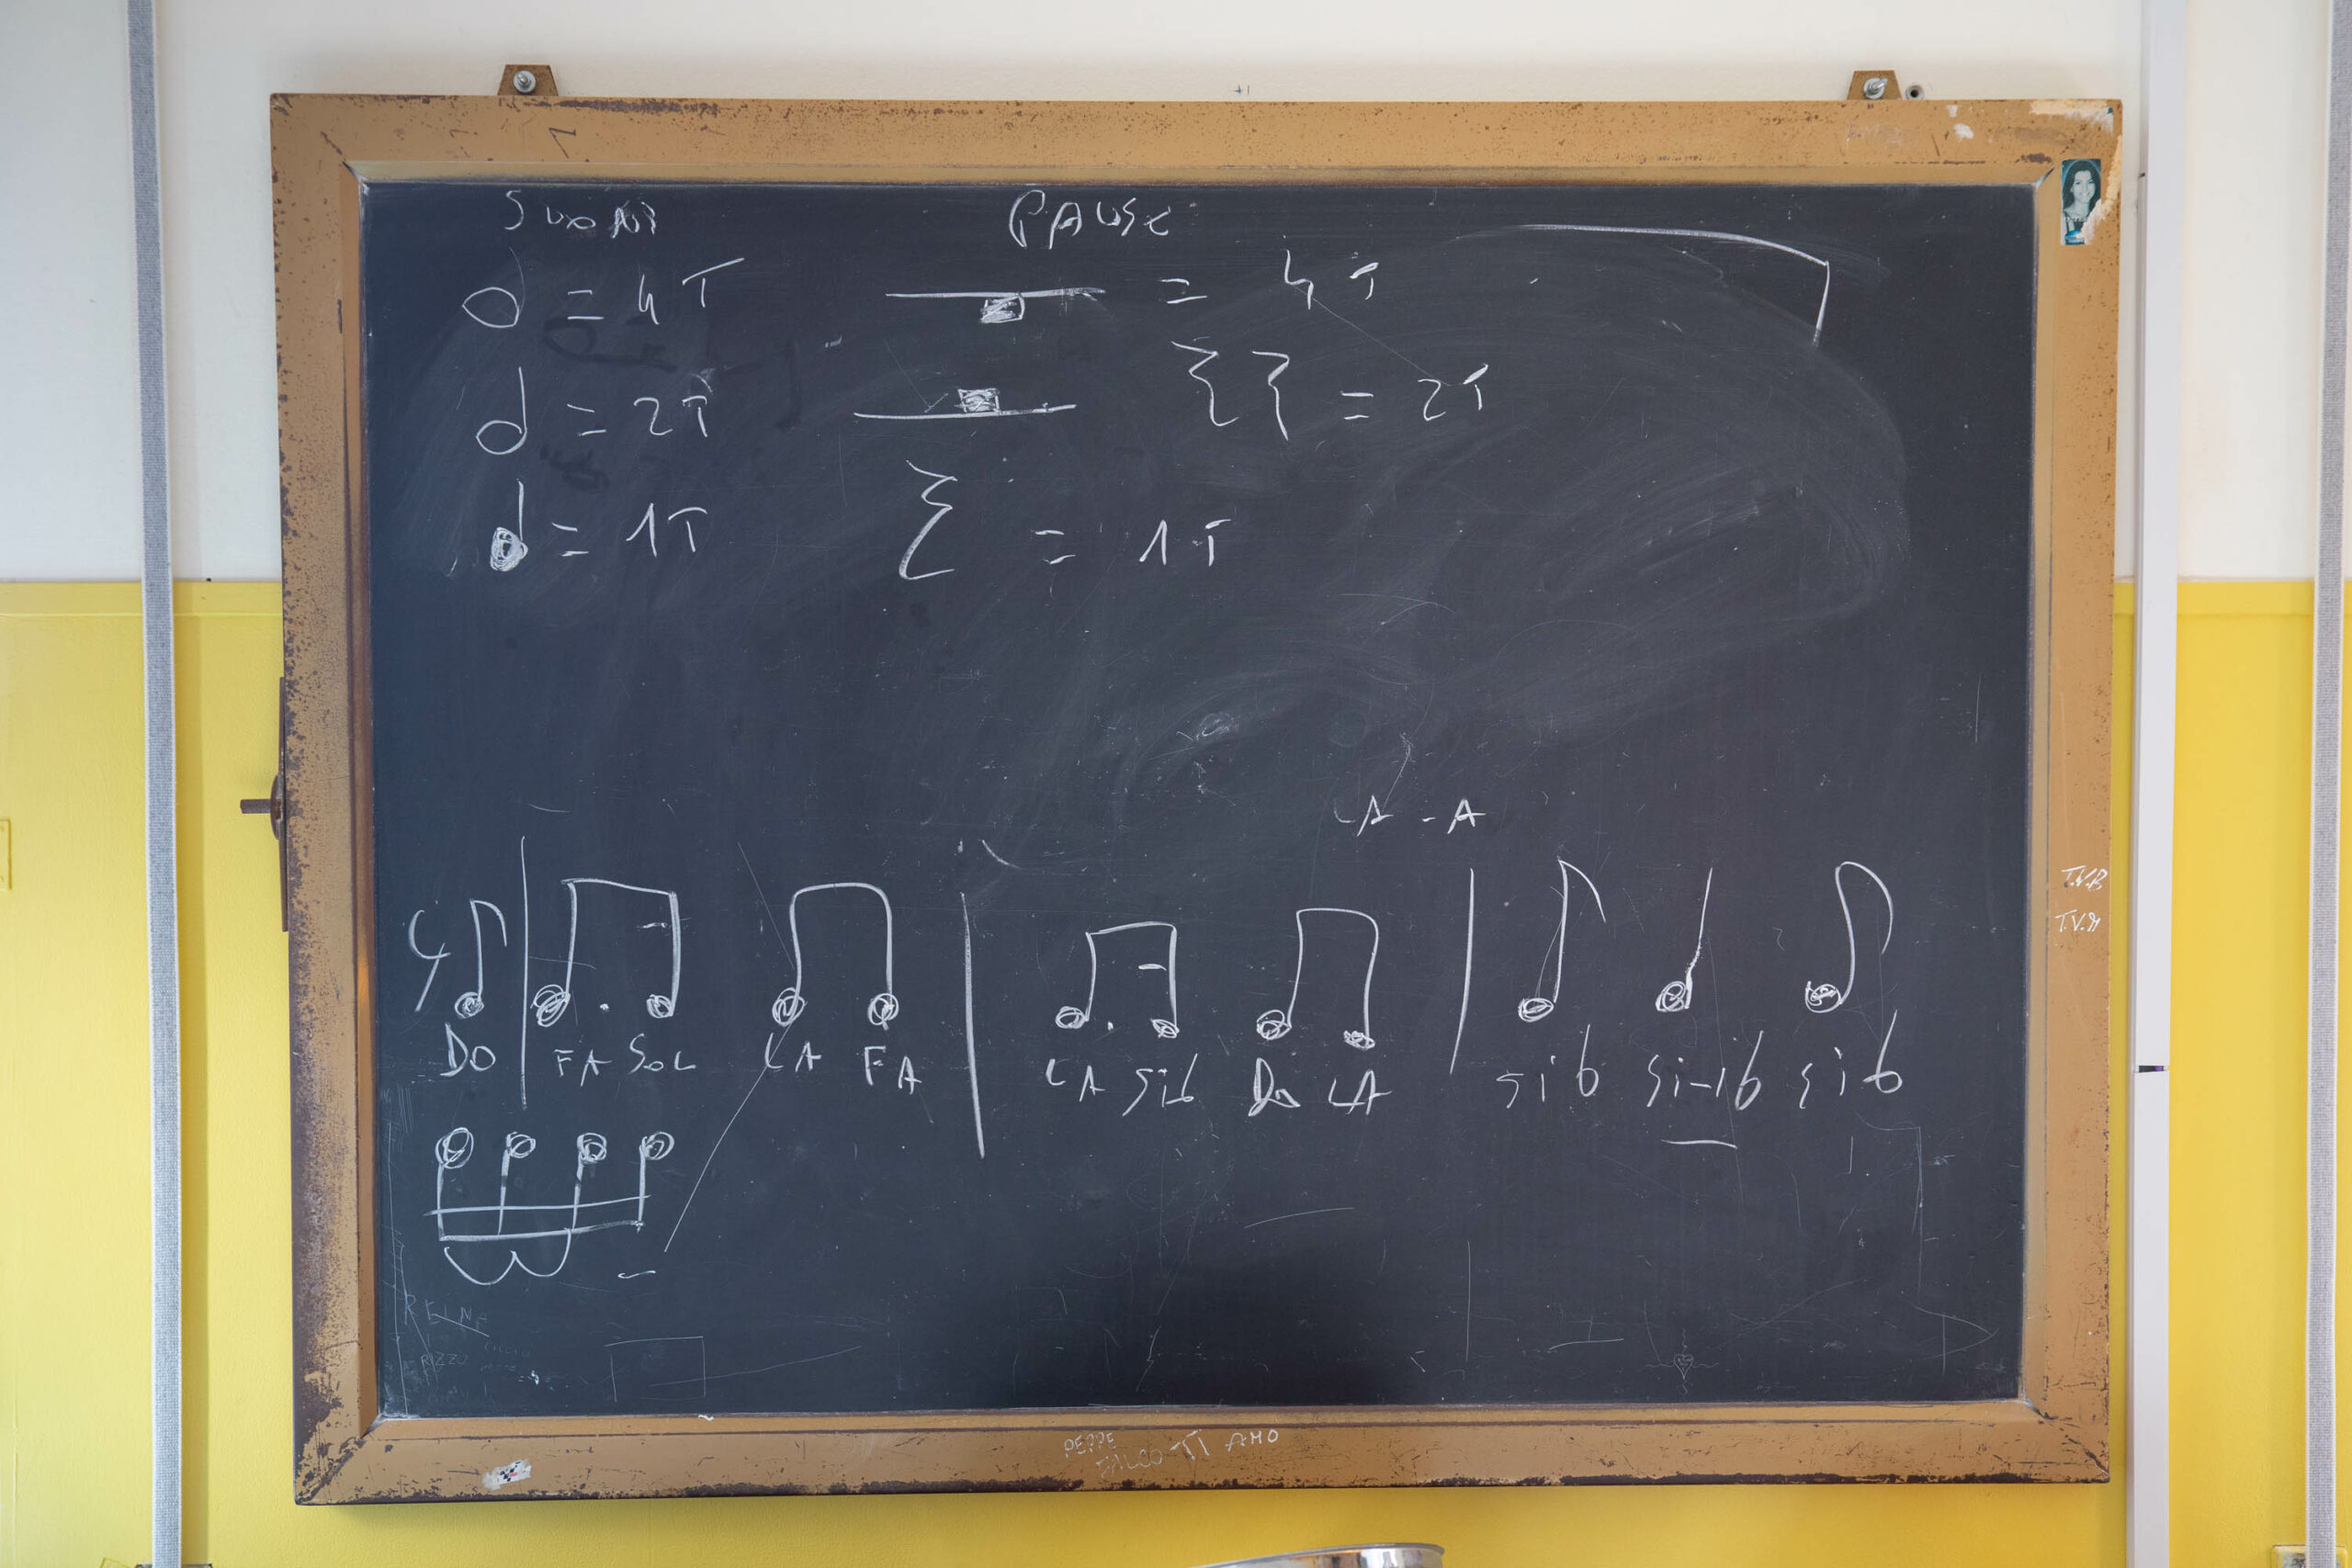 SUONI PAUSE
= 4T = 4T
= 2T = 2T
= 1T = 1T
LA - A
DO FA SOL LA FA LA Sib Do LA Sib Si-ib Sib
T.V.B
T.V.M
RIZZO
PEPPE
TI AMO